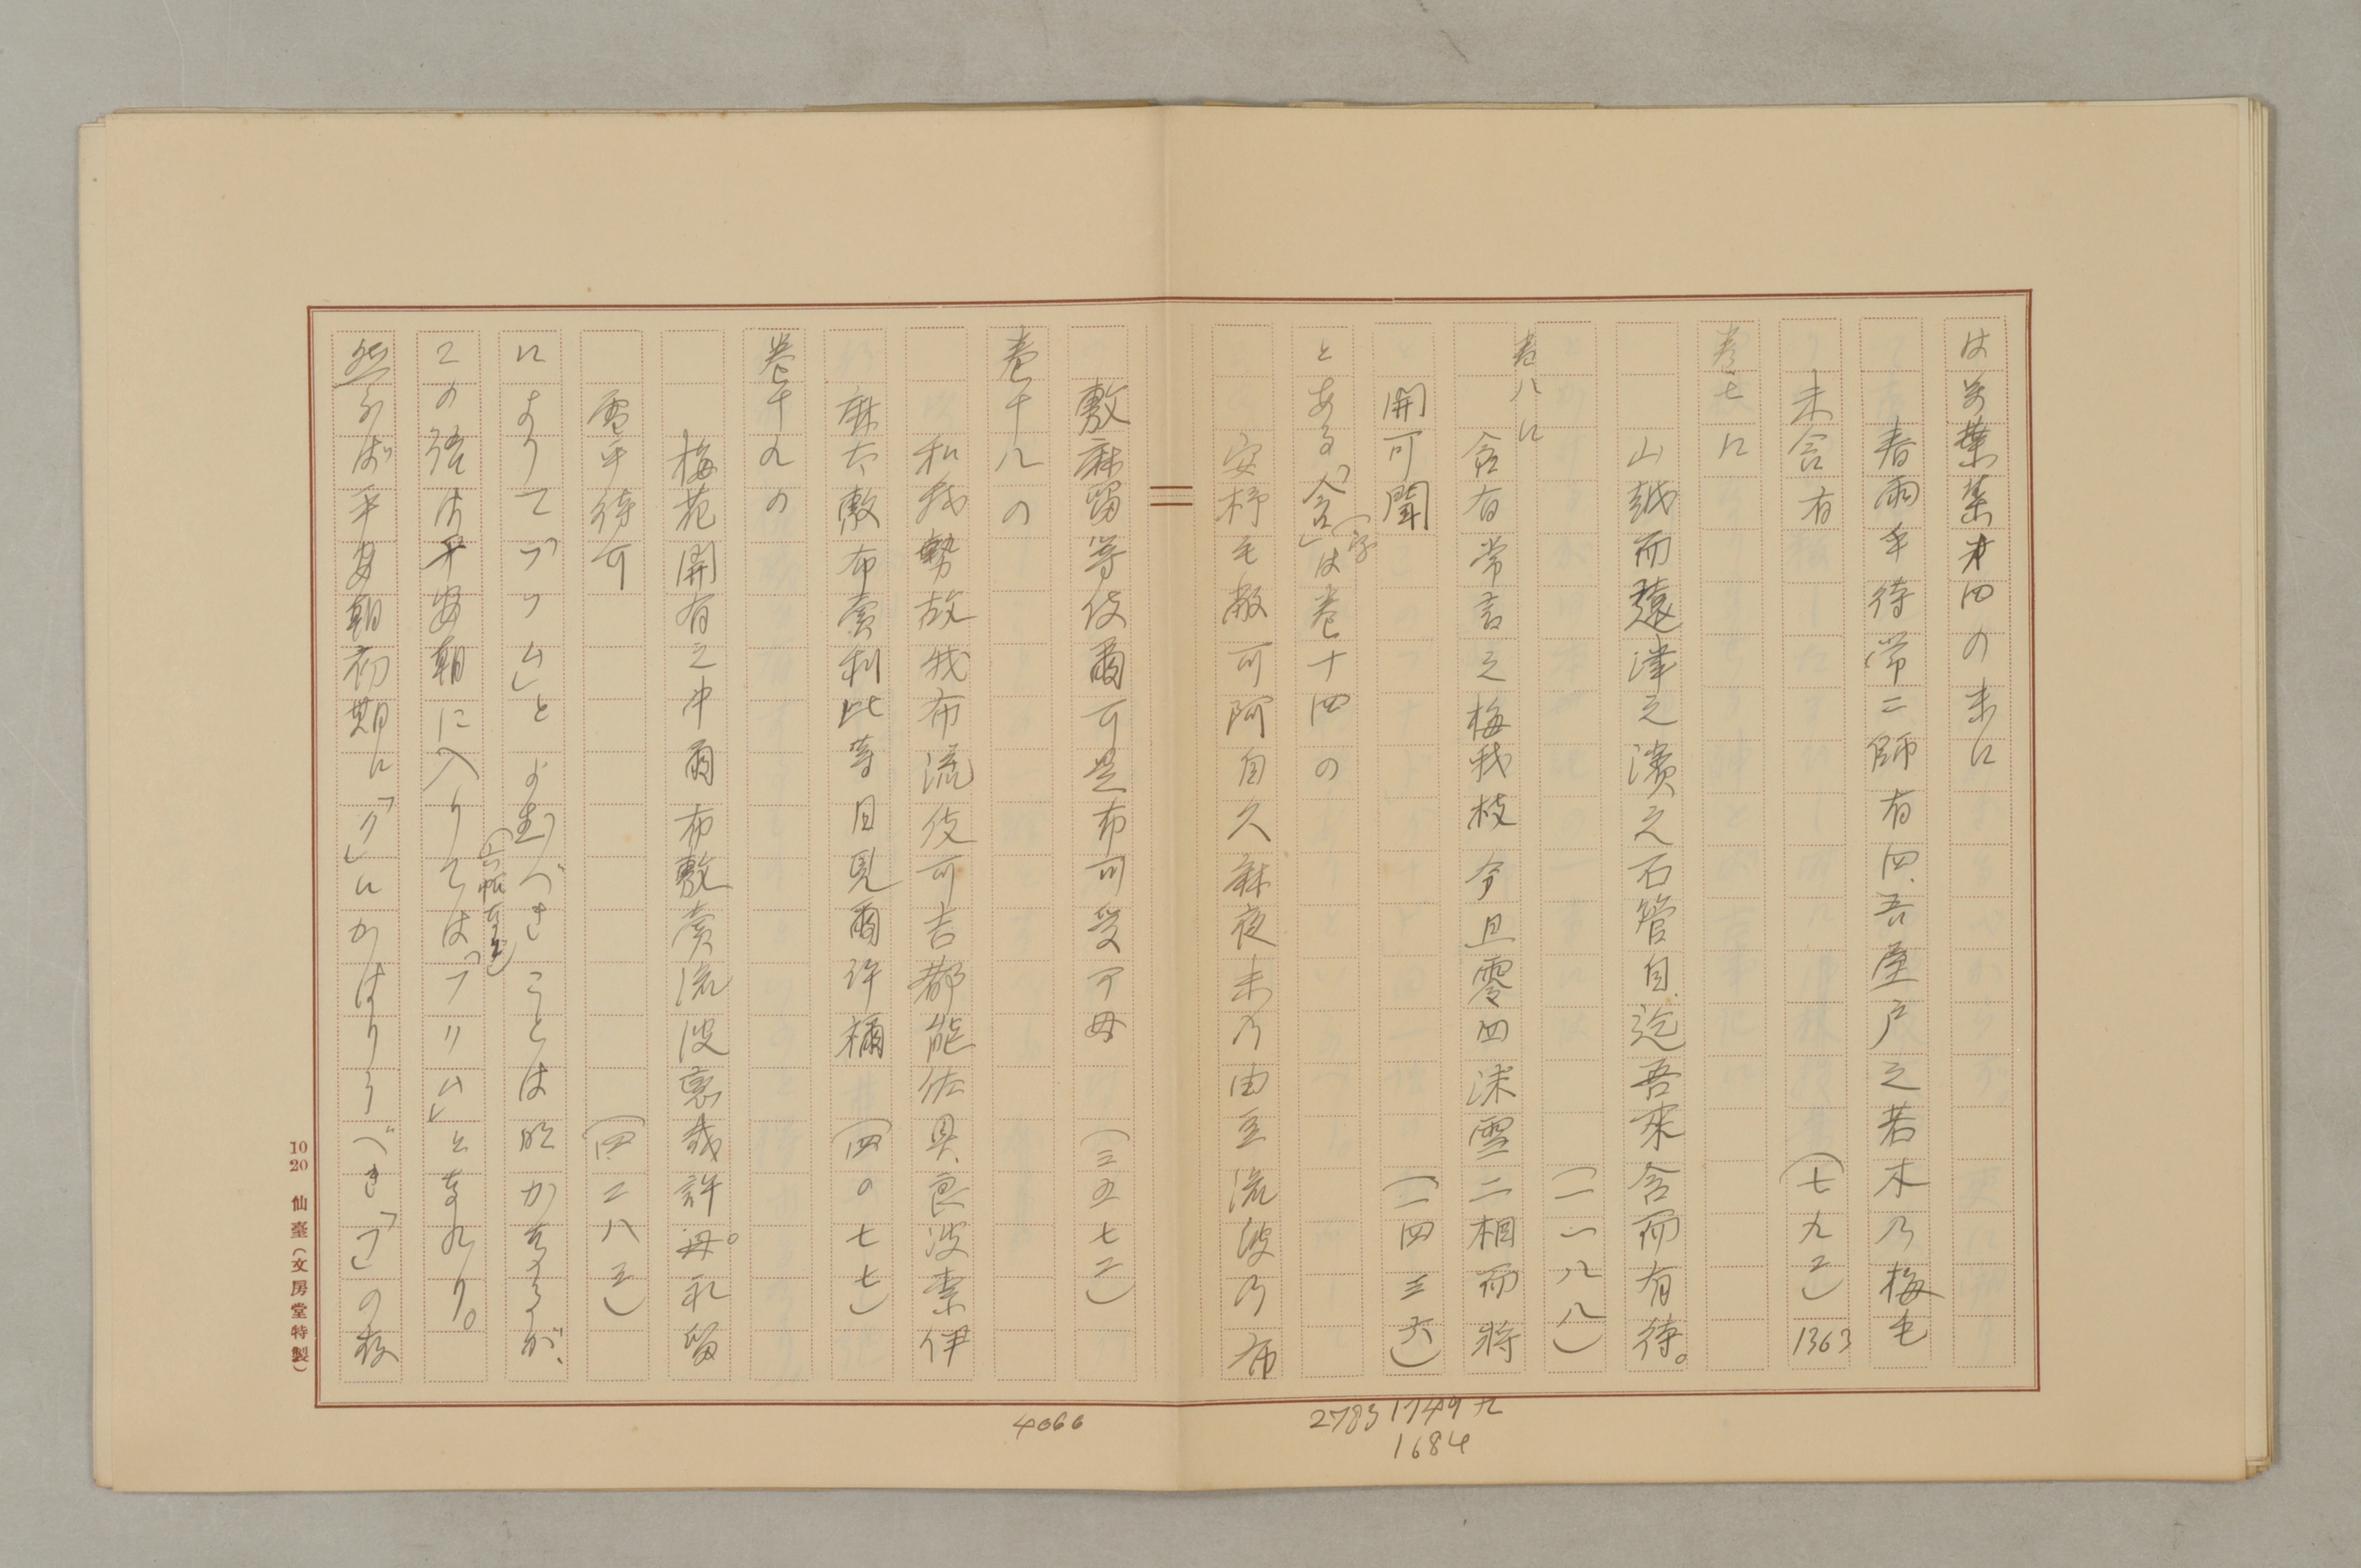 は万葉集第四の末に
春雨乎待常二師有四吾屋戸之若木乃梅毛
未含有（七九二）1363
巻七に
山越而遠津之濱之石管自迄吾来含而有待。
（一一八八）
巻八に
含有常言之梅我枝今旦零四沫雪二相而将
開可聞（一四三六）
とある「含」（字）は巻十四の
安杼毛敝可阿自久麻夜末乃由豆流波乃布
敷麻留等伎爾可是布可受可母（三五七二）
巻十八の
和我勢故我布流伎可吉都能佐具良波奈伊
麻太敷布賣利比等目見爾許禰（四〇七七）
巻十九の
梅花開有之中爾布敷賣流波戀哉許母礼留
雪乎待可（四二八三）
によりて「フフム」とよむべきことは明かなるが、
この語は平安朝に入りては（六帖など）「フクム」となれり。
然らば平安朝初期に「ク」にかはりうべき「フ」の教
2783 1749 九
1684
4066
10 20 仙臺（文房堂特製）